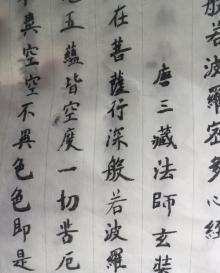 般若波羅密多心經
唐三藏法師玄奘
在菩薩行深般若波羅
見五蘊皆空度一切苦厄
不異空空不異色色即是